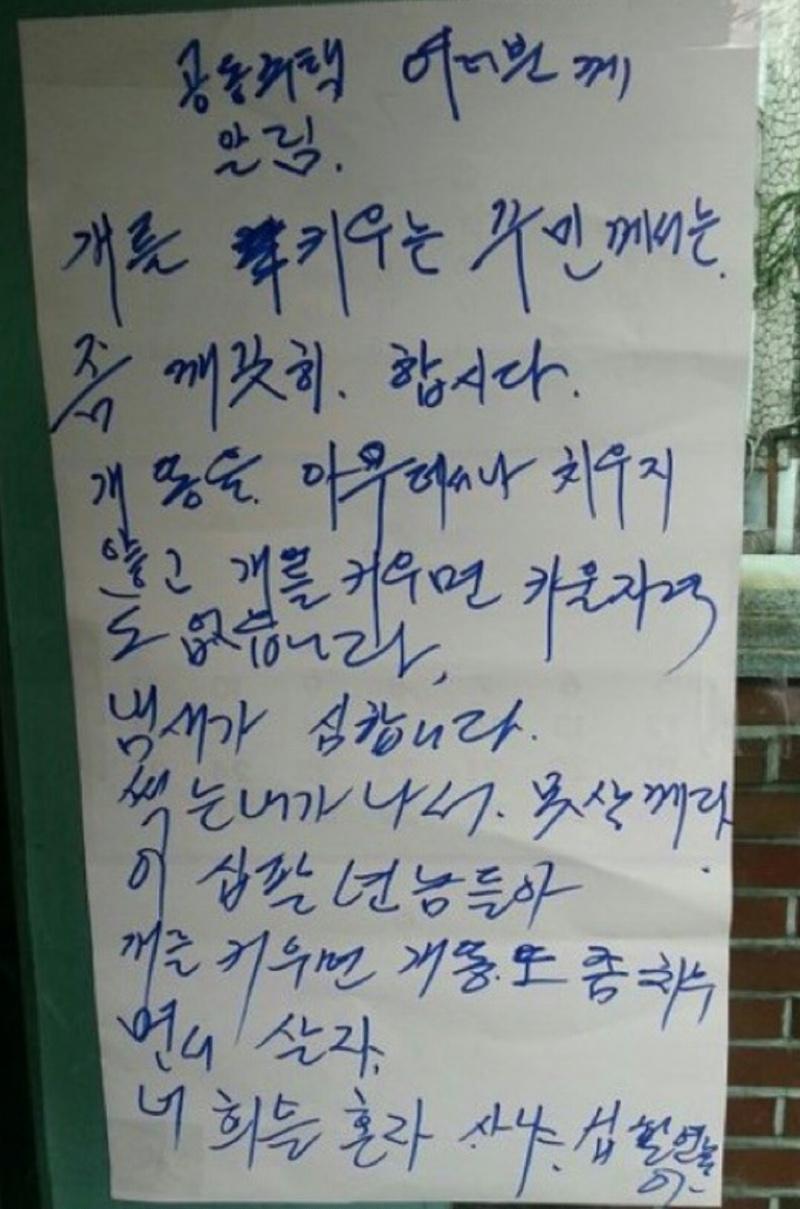 공동주택 여러분께
알림.
개를 키우는 주민께서는.
좀 깨끗히. 합시다.
개똥을. 아무데서나 치우지
않고 개를 키우면 키울자격
도 없습니다.
냄새가 심합니다.
썩는내가 나서. 못살께다.
이 십팔년놈들아
개를 키우면 개똥도 좀 치우
면서 살자.
너희들 혼자 사냐. 십팔연놈
아